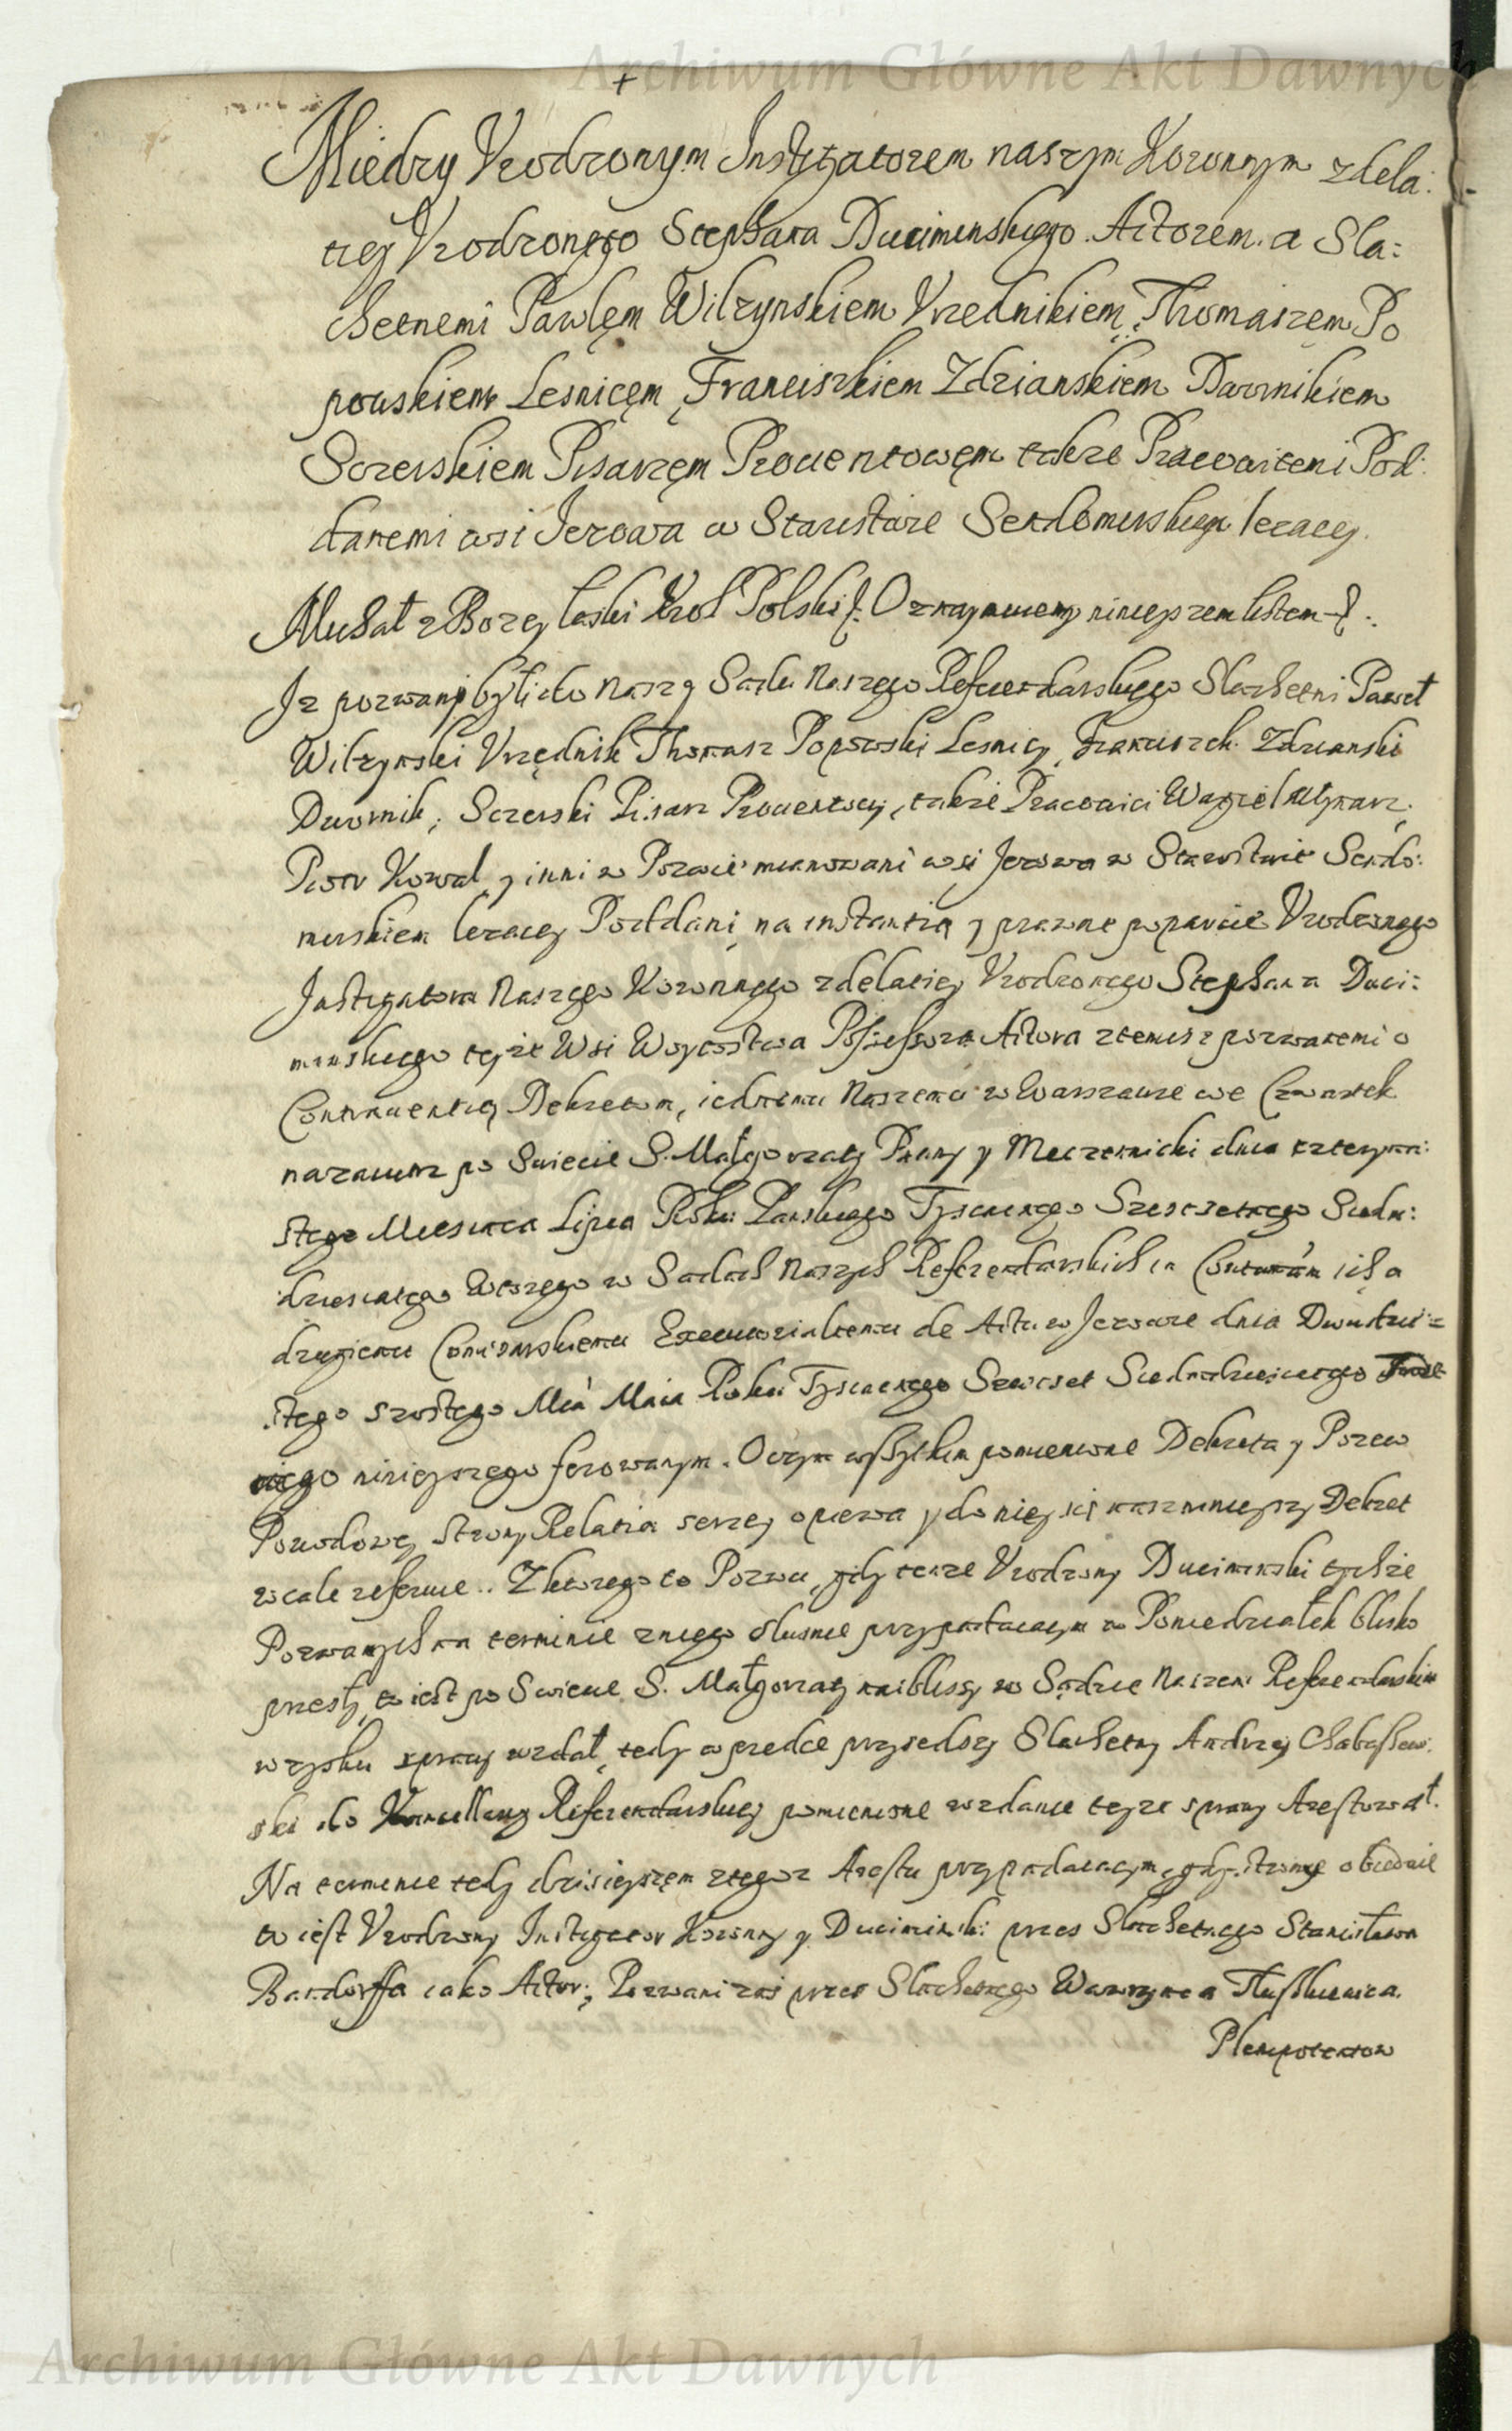 Archiwum Główne Akt Dawnych
Miedzy Vrodzonym Instigatorem naszym Koronnym z dela:
tiey Vrodzonego Stephana Duciminskiego Actorem. a Sla:
chetnemi Pawlęm Wilzynskiem Vrzednikiem, Thomaszem Po
powskiem Lesnicęm, Franciszkiem Zdzianskiem Dwornikiem
Sczerskiem Pisarzęm Prouentowęm także Pracowitemi Pod:
danemi wsi Jezowa w Starostwie Sendomirskiego lezacey.
Michał z Bozey łaski Krol Polski Oznaymuiemy ninieyszem listem
Jz pozwani byli do Naszego Sadu Naszego Referendarskiego Slachetni Paweł
Wilzynski Vrzędnik Thomasz Popowski Lesniczy, Franciszek Zdzianski
Dwornik, Sczerski Pisarz Prouentowy, także Pracowici Węgiel Młynarz,
Piotr Kowal, y inni w Pozwie mianowani wsi Jezowa w Starostwie Sendo:
mirskiem lezacey Poddani, na instantią y prawne poparcie Vrodzonego
Instigatora Naszego Koronnego z delatiey Vrodzonego Stephana Duci:
minskiego teyże Wsi Woytostwa Possessora Actora z temisz pozwanemi o
Contrauentią Dekretom, iednemu Naszemu w Warszawie we Czwartek
nazaiutrz po Swiecie S. Małgorzaty Panny y Meczennicki dnia czternas:
stego Miesiaca Lipca Roku Panskiego Tysiacnego Szescsetnego Siedm:
dziesiatego w Sadach Naszych Referendarskich in Contum ich a
drugiemu Comisarskiemu Executorialnemu de Actu w Jezowie dnia Dwudzie=
stego szostego Mca Maia Roku Tysiacnego Szescset Siedmdziesiatego
ninieyszego ferowanym. O czym wszytkim pomienione Dekreta y Pozew
Powodowey Strony Relatia serzey opiewa y do niey się nasz ninieyszy Dekret
wcale referuie.. Z ktorego to Pozwu, gdy tenze Vrodzony Duciminski tychże
Pozwanych na terminie z niego słusnie przypadaiacym w Poniedziałek blisko
przesły, to iest po Swiecie S. Małgorzaty naiblissy w Sądzie Naszem Referendarskim
w zysku sprawy wzdał, tedy wpredce przysedszy Slachetny Andrzey
ski do Kancellariy Referendarskiey pomienione wzdanie teyze sprawy Arestował.
Na terminie tedy dzisieyszęm z tegoz Arestu przypadaiacym, gdy strony obiedwie
to iest Vrodzony Instigator Koronny y Duciminski przes Slachetnego Stanisława
Bandorffa iako Actor; Pozwani zas przes Slachetnego Wawrzynca
Plenipotentow
Archiwum Główne Akt Dawnych